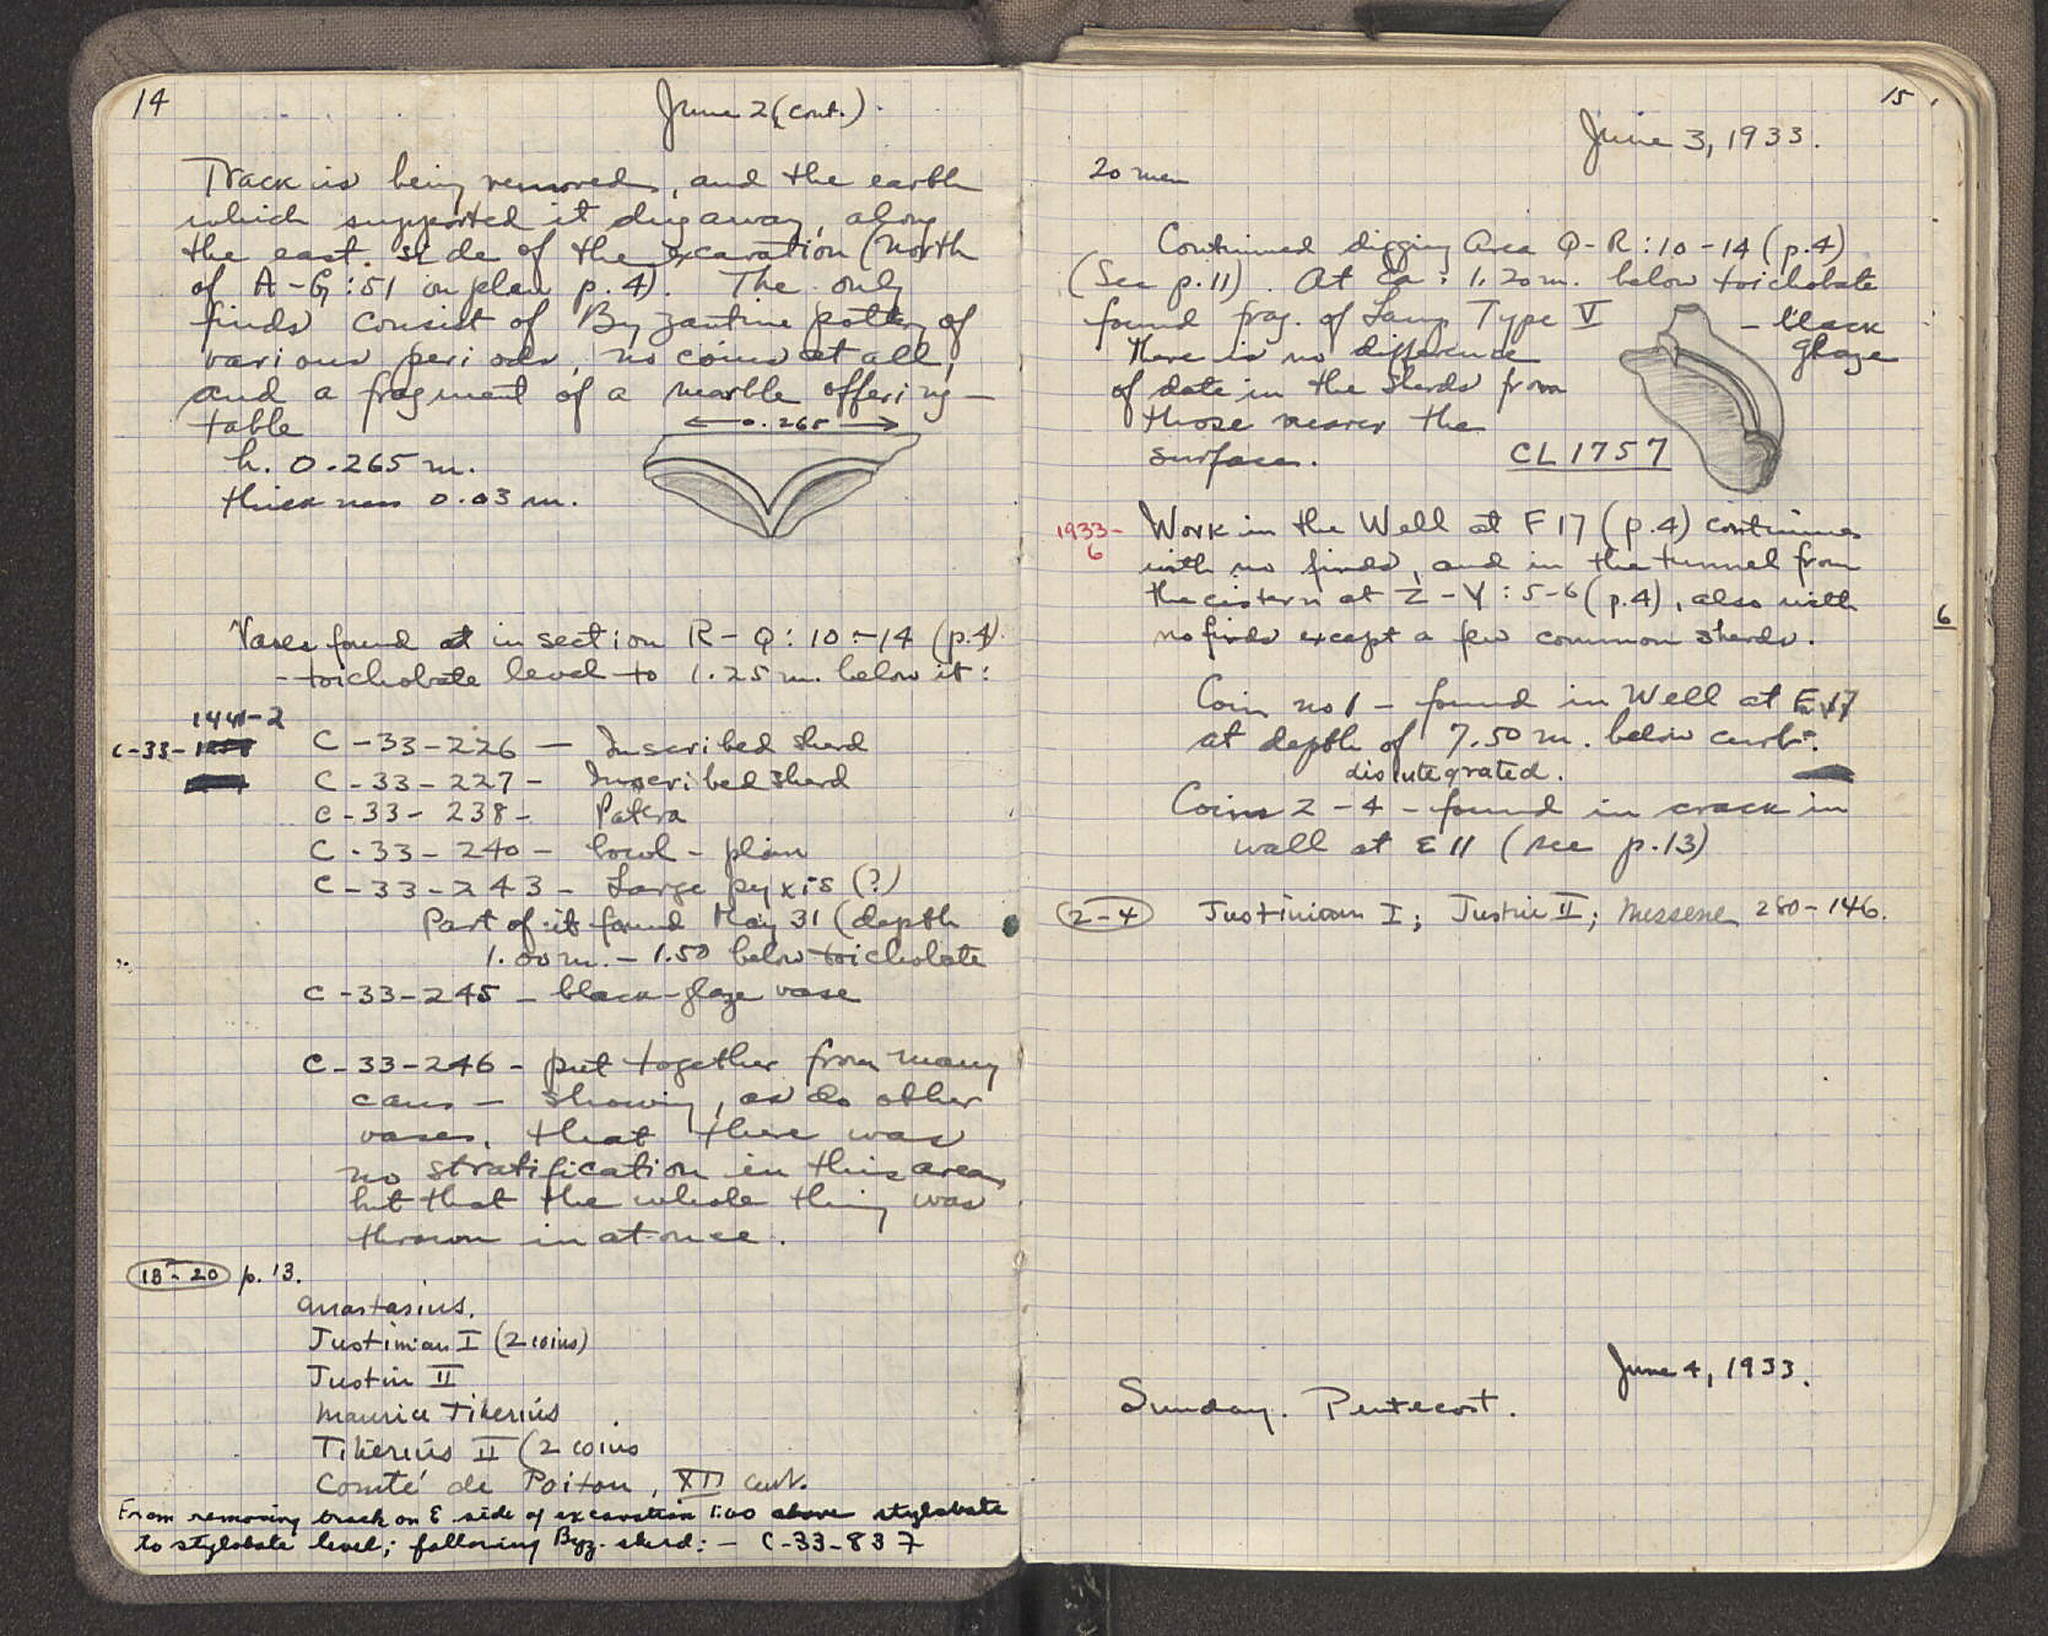 14
June 2 (cont.)
Track is being removed, and the earth
which supported it dug away, along
the east side of the excavation (north
of A-G:51 on plan p.4). The only
finds consist of Byzantine pottery of
various periods, no coins at all,
and a fragment of a marble offering-
table
0.265
h. 0.265 m.
thickness 0.03 m.
Vases found at in section R-Q:10-14 (p.4)
-toichobate level to 1.25 m. below it:
1441-2
C-33-
C-33-226 — Inscribed sherd
C-33-227 - Inscribed sherd
C-33-238 - Patera
C-33-240 - bowl - plain
C-33-243 - Large pyxis (?)
Part of it found May 31 (depth
1.00 m. - 1.50 below toichobate
C-33-245 - black-glaze vase
C-33-246 - put together from many
cans - showing, as do other
vases, that there was
no stratification in this area,
but that the whole thing was
thrown in at once.
18-20 p. 13.
Anastasius.
Justinian I (2 coins)
Justin II
Maurice Tiberius
Tiberius II (2 coins
Comté de Poitou, XII cent.
From removing track on E side of excavation 1.00 above stylobate
to stylobate level; following Byz. sherd: - C-33-837
15
June 3, 1933.
20 men
Continued digging Area Q-R:10-14 (p.4)
(See p.11). At ca. 1.20 m. below toichobate
found frag. of Lamp Type V - black
glaze
There is no difference
of date in the sherds from
those nearer the
surface.
CL 1757
1933-
6
Work in the Well at F 17 (p.4) continues
with no finds, and in the tunnel from
the cistern at Z-Y:5-6 (p.4), also with
no finds except a few common sherds.
6
Coin no 1 - found in Well at F 17
at depth of 7.50 m. below curb.
disintegrated.
Coins 2-4 - found in crack in
wall at E 11 (see p.13)
2-4 Justinian I; Justin II; Messene 280-146.
June 4, 1933.
Sunday. Pentecost.